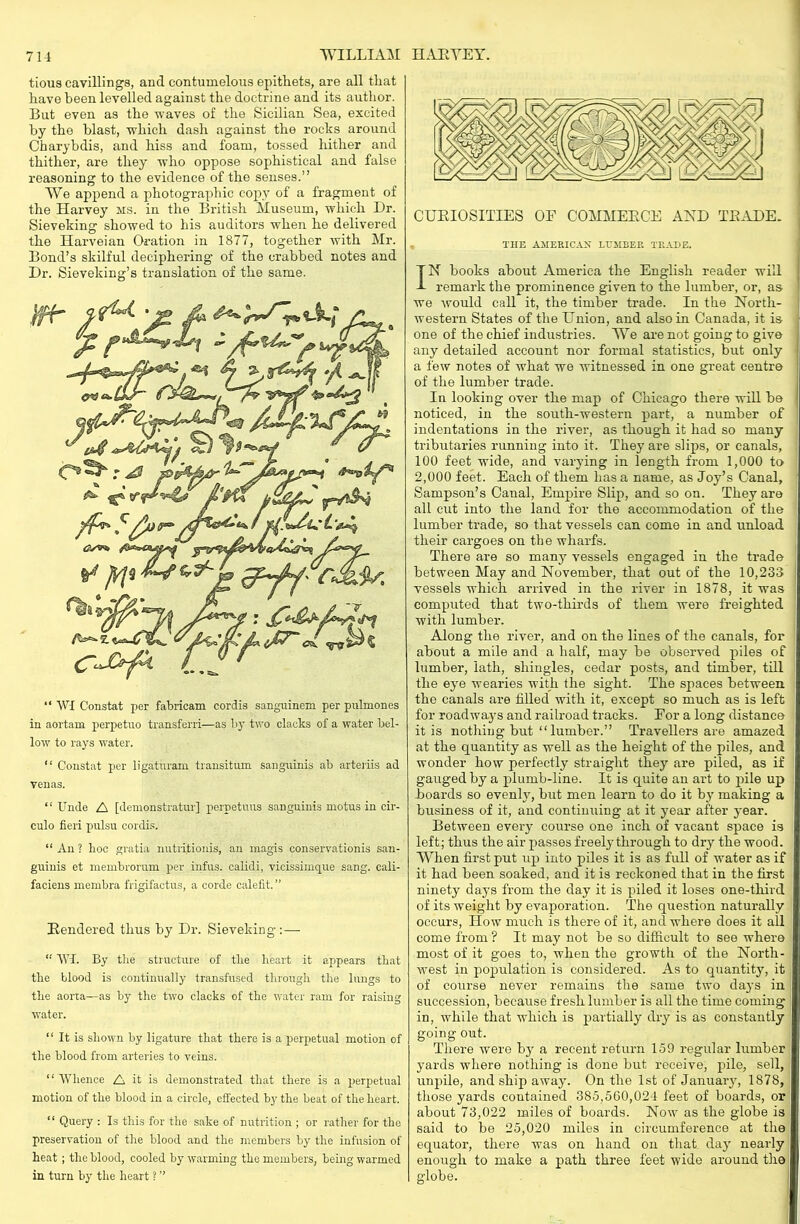 714 WILLIAM HARVEY.
tious cavillings, and contumelous epithets, are all that
have been levelled against the doctrine and its author.
But even as the waves of the Sicilian Sea, excited
by the blast, which dash against the rocks around
Charybdis, and hiss and foam, tossed hither and
thither, are they who oppose sophistical and false
reasoning to the evidence of the senses.”
We append a photographic copy of a fragment of
the Harvey MS. in the British Museum, which Dr.
Sieveking showed to his auditors when he delivered
the Harveian Oration in 1877, together with Mr.
Bond’s skilful deciphering of the crabbed notes and
Dr. Sieveking’s translation of the same.
“ WI Constat per fabricam cordis sanguinem per pulmones
in aortam perpetuo transferri—as by two clacks of a water bel-
low to rays water.
“ Constat per ligaturam transitum sanguinis ab arteriis ad
venas.
“ Unde Δ [demonstratur] perpetuus sanguinis motus in cir-
culo fieri pulsu cordis.
“ An ? hoc gratia nutritionis, an magis conservationis san-
guinis et membrorum per infus. calidi, vicissimque sang. cali-
faciens membra frigifactus, a corde calefit.”
Rendered thus by Dr. Sieveking :—
“ WI. By the structure of the heart it appears that
the blood is continually transfused through the lungs to
the aorta—as by the two clacks of the water ram for raising
water.
“ It is shown by ligature that there is a perpetual motion of
the blood from arteries to veins.
“ Whence Δ it is demonstrated that there is a perpetual
motion of the blood in a circle, effected by the beat of the heart.
“ Query : Is this for the sake of nutrition ; or rather for the
preservation of the blood and the members by the infusion of
heat ; the blood, cooled by warming the members, being warmed
in turn by the heart ? ”
CURIOSITIES OF COMMERCE AND TRADE.
THE AMERICAN LUMBER TRADE.
IN books about America the English reader will
remark the prominence given to the lumber, or, as
we would call it, the timber trade. In the North-
western States of the Union, and also in Canada, it is
one of the chief industries. We are not going to give
any detailed account nor formal statistics, but only
a few notes of what we witnessed in one great centre
of the lumber trade.
In looking over the map of Chicago there will be
noticed, in the south-western part, a number of
indentations in the river, as though it had so many
tributaries running into it. They are slips, or canals,
100 feet wide, and varying in length from 1,000 to
2,000 feet. Each of them has a name, as Joy’s Canal,
Sampson’s Canal, Empire Slip, and so on. They are
all cut into the land for the accommodation of the
lumber trade, so that vessels can come in and unload
their cargoes on the wharfs.
There are so many vessels engaged in the trade
between May and November, that out of the 10,233
vessels which arrived in the river in 1878, it was
computed that two-thirds of them were freighted
with lumber.
Along the river, and on the lines of the canals, for
about a mile and a half, may be observed piles of
lumber, lath, shingles, cedar posts, and timber, till
the eye wearies with the sight. The spaces between
the canals are filled with it, except so much as is left
for roadways and railroad tracks. For a long distance
it is nothing but “lumber.” Travellers are amazed
at the quantity as well as the height of the piles, and
wonder how perfectly straight they are piled, as if
gauged by a plumb-line. It is quite an art to pile up
boards so evenly, but men learn to do it by making a
business of it, and continuing at it year after year.
Between every course one inch of vacant space is
left; thus the air passes freely through to dry the wood.
When first put up into piles it is as full of water as if
it had been soaked, and it is reckoned that in the first
ninety days from the day it is piled it loses one-third
of its weight by evaporation. The question naturally
occurs, How much is there of it, and where does it all
come from ? It may not be so difficult to see where
most of it goes to, when the growth of the North-
west in population is considered. As to quantity, it
of course never remains the same two days in
succession, because fresh lumber is all the time coming
in, while that which is partially dry is as constantly
going out.
There were by a recent return 159 regular lumber
yards where nothing is done but receive, pile, sell,
unpile, and ship away. On the 1st of January, 1878,
those yards contained 385,560,024 feet of boards, or
about 73,022 miles of boards. Now as the globe is
said to be 25,020 miles in circumference at the
equator, there was on hand on that day nearly
enough to make a path three feet wide around the
globe.